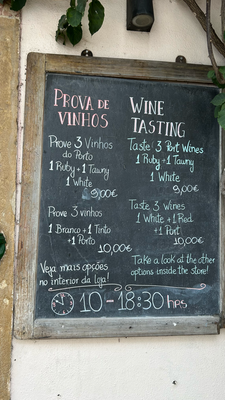 PROVA DE
VINHOS
Prove 3 Vinhos
do Porto
1 Ruby + 1 Tawny
1 White
9,00€
Prove 3 vinhos
1 Branco + 1 Tinto
+ 1 Porto
10,00€
Veja mais opções
no interior da loja!
WINE
TASTING
Taste 3 Port Wines
1 Ruby + 1 Tawny
1 White
9,00€
Taste 3 Wines
1 White + 1 Red
+ 1 Port
10,00€
Take a look at the other
options inside the store!
10 - 18:30 hrs